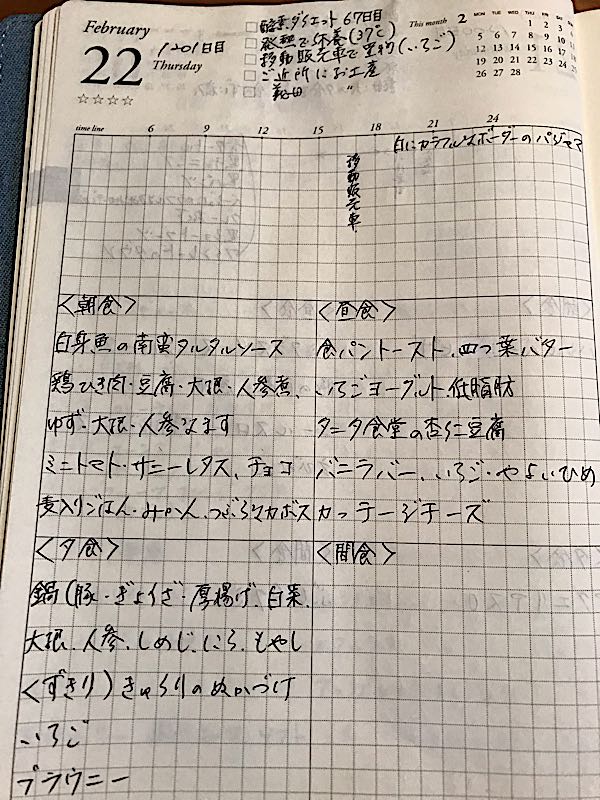 February
22
Thursday
1201日目
☆☆☆☆
酵素ダイエット 67日目
発熱で休養(37℃)
移動販売車で買物(いちご)
ご近所にお土産
〃
This month 2
MON TUE WED THU FRI SAT
1 2 3
5 6 7 8 9 10
12 13 14 15 16 17
19 20 21 22 23 24
26 27 28
time line 6 9 12 15 18 21 24
白にカラフルなボーダーのパジャマ
移動販売車
<朝食>
白身魚の南蛮タルタルソース
鶏ひき肉・豆腐・大根・人参煮、
ゆず・大根・人参なます
ミニトマト・サニーレタス、チョコ
麦入りごはん・みかん、つぶらなカボス
<昼食>
食パントースト、四つ葉バター
いちごヨーグルト、低脂肪
タニタ食堂の杏仁豆腐
バニラバー、いちご・やよいひめ
カッテージチーズ
<夕食>
鍋(豚・ぎょうざ・厚揚げ、白菜、
大根、人参、しめじ、にら、もやし
くずきり)きゅうりのぬかづけ
いちご
ブラウニー
<間食>